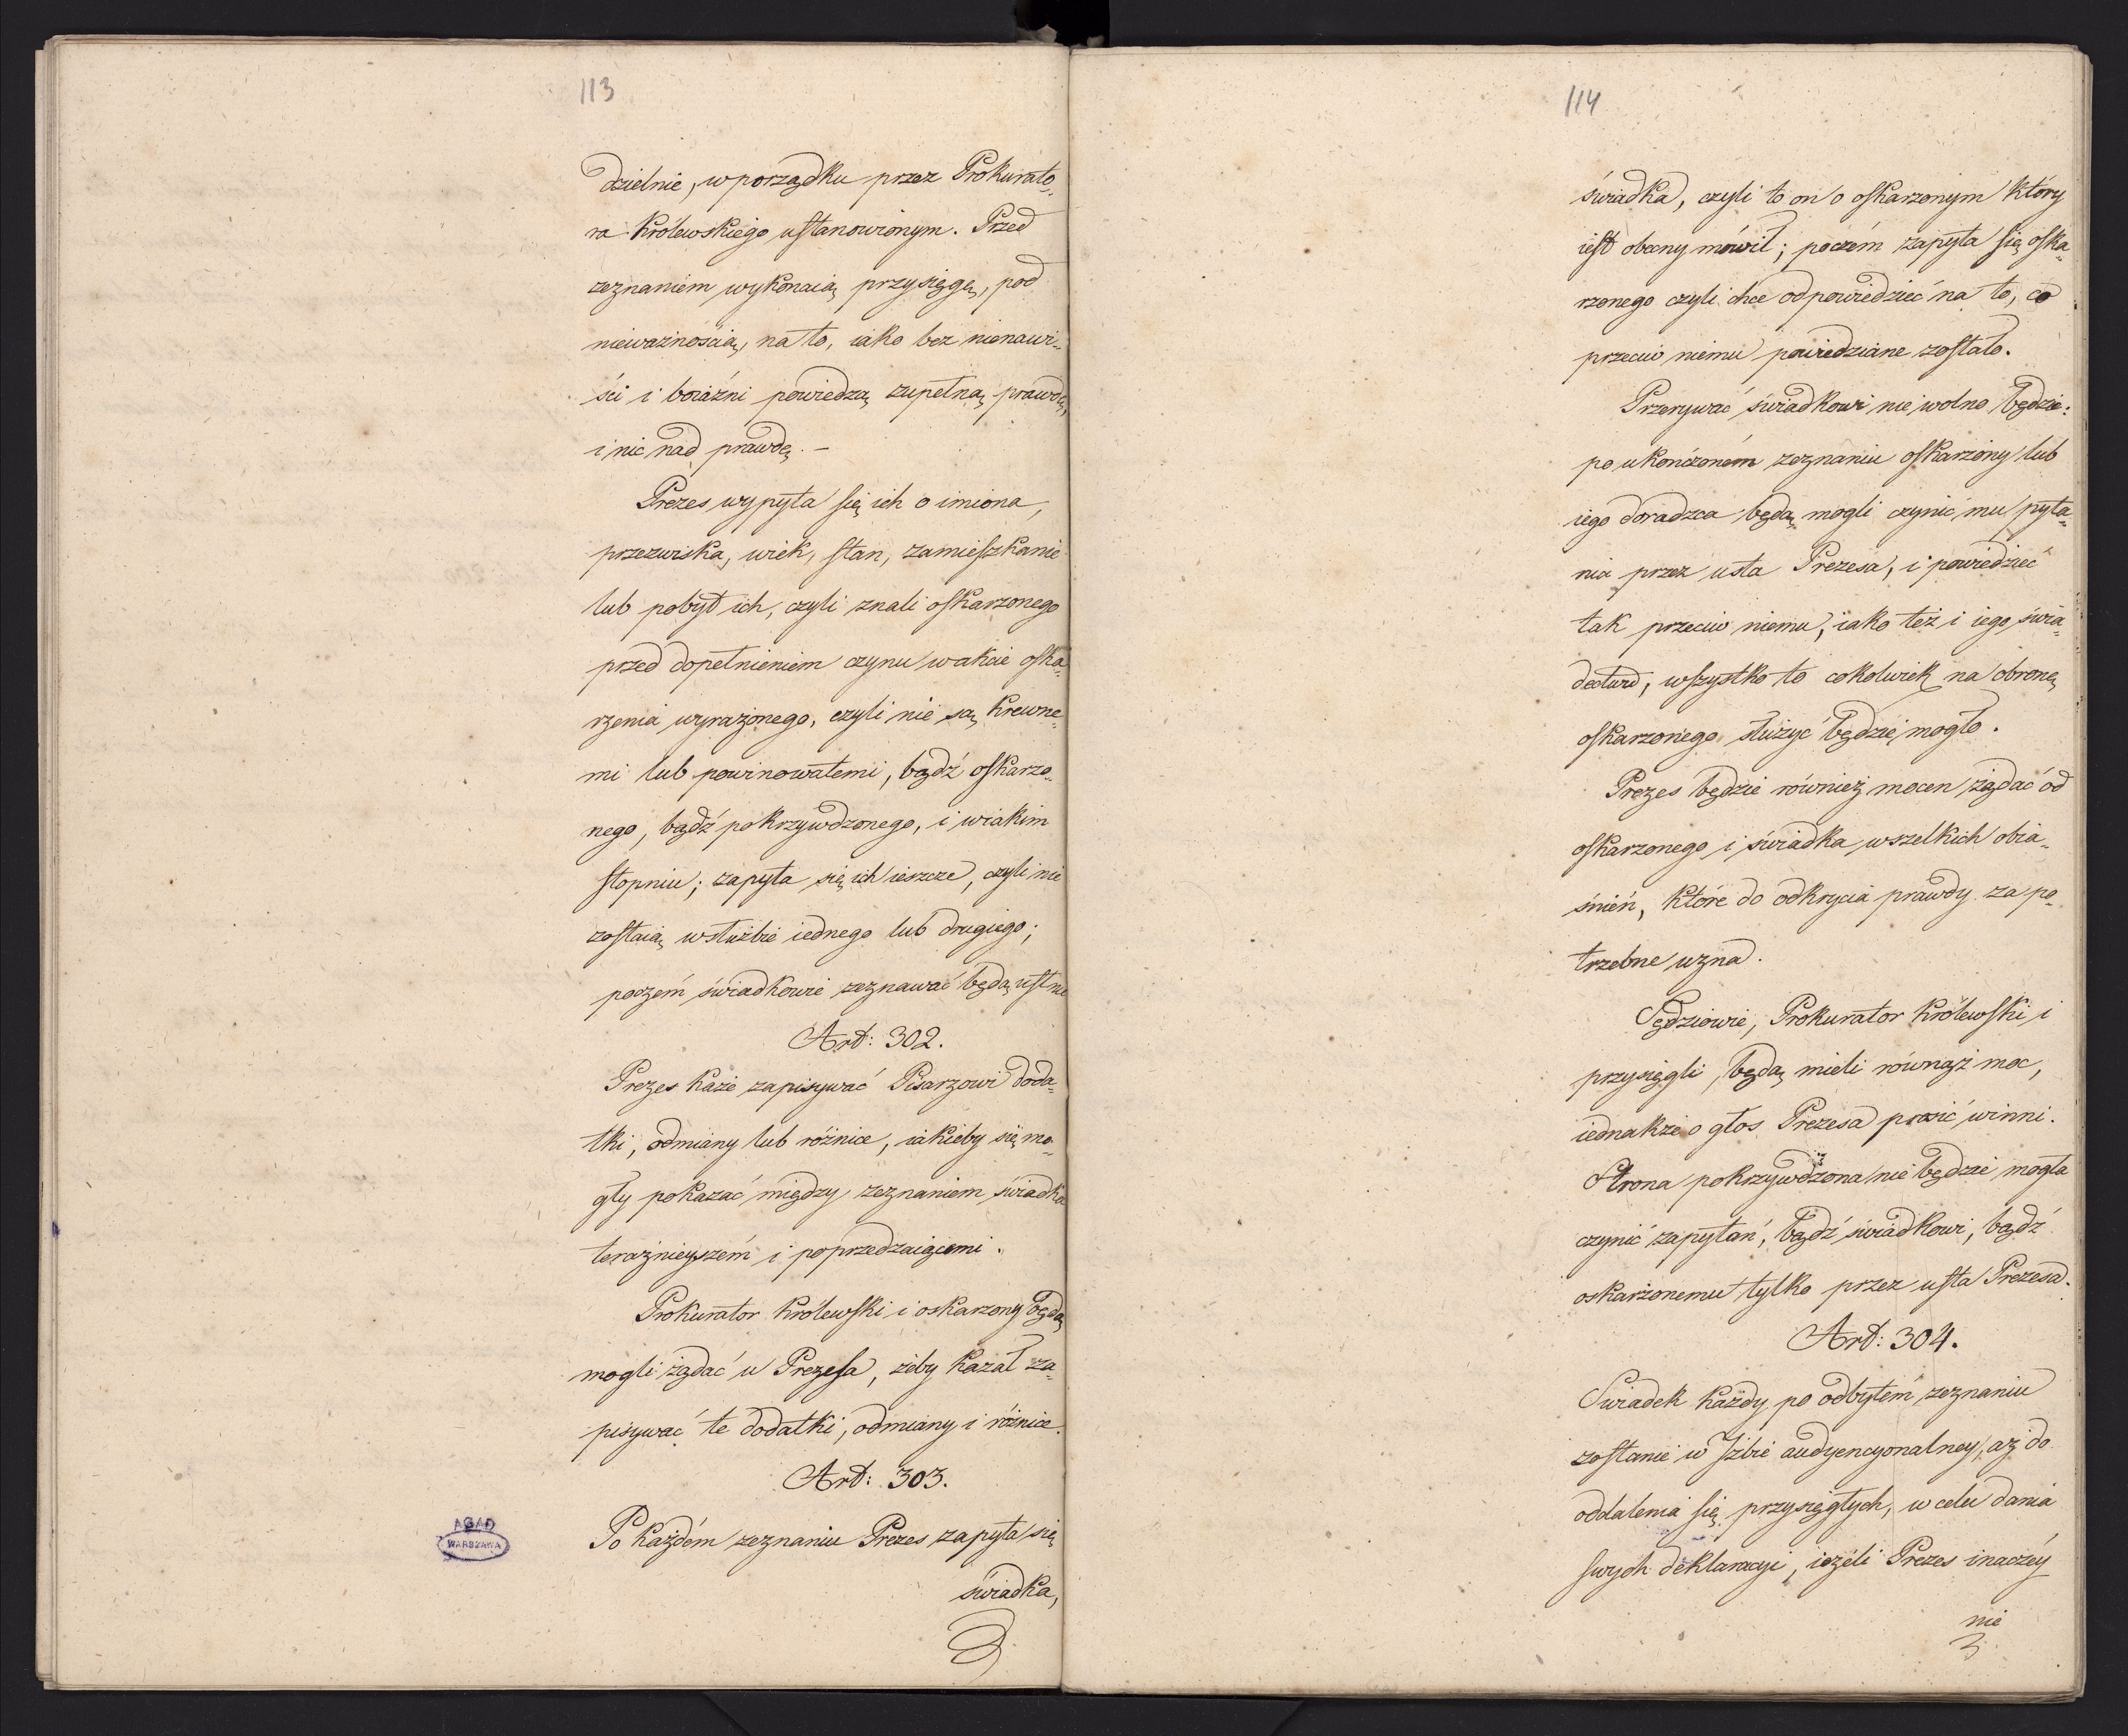 113
dzielnie, w porządku przez Prokurato„
ra Królewskiego ustanowionym. Przed
zeznaniem wykonaią przysięgę, pod
nieważnością, na to, iako bez nienawi„
ści i boiaźni powiedzą zupełną prawdę,
i nic nad prawdę. –
Prezes wypyta się ich o imiona,
przezwiska, wiek, stan, zamieszkanie
lub pobyt ich, czyli znali oskarzonego
przed dopełnieniem czynu w akcie oska„
rzenia wyrażonego, czyli nie są krewne„
mi lub powinowatemi, bądź oskarzo„
nego, bądź pokrzywdzonego, i w iakim
stopniu; zapyta się ich ieszcze, czyli nie
zostaią w służbie iednego lub drugiego;
poczém świadkowie zeznawać będą ustnie
Art: 302.
Prezes każe zapisywać Pisarzowi doda„
tki, odmiany lub różnice, iakieby się mo„
gły pokazać między zeznaniem świadka
teraźnieyszém i poprzedzaiącemi.
Prokurator Królewski i oskarzony będą
mogli żądać u Prezesa, żeby kazał za„
pisywać te dodatki, odmiany i różnice.
Art: 303.
Po każdém zeznaniu Prezes zapyta się
świadka,
AGAD
WARSZAWA
114
świadka, czyli to on o oskarzonym który
iest obecny mówił; poczém zapyta się oska„
rzonego czyli chce odpowiedzieć na to, co
przeciw niemu powiedziane zostało.
Przerywać świadkowi nie wolno będzie:
po ukończoném zeznaniu oskarżony lub
iego doradzca będą mogli czynić mu pyta„
nia przez usta Prezesa, i powiedzieć
tak przeciw niemu, iako też i iego świa„
dectwu, wszystko to cokolwiek na obronę
oskarzonego służyć będzie mogło.
Prezes będzie również mocen żądać od
oskarzonego i świadka wszelkich obia„
śnień, które do odkrycia prawdy za po„
trzebne uzna.
Sędziowie, Prokurator Królewski i
przysięgli, będą mieli równąż moc,
iednakże o głos Prezesa prosić winni.
Strona pokrzywdzona nie będzie mogła
czynić zapytań, bądź świadkowi, bądź
oskarżonemu tylko przez usta Prezesa.
Art: 304.
Swiadek każdy po odbytém zeznaniu
zostanie w Izbie audyencyonalney, aż do
oddalenia się przysięgłych, w celu dania
swych deklaracyi, ieżeli Prezes inaczéy
nie